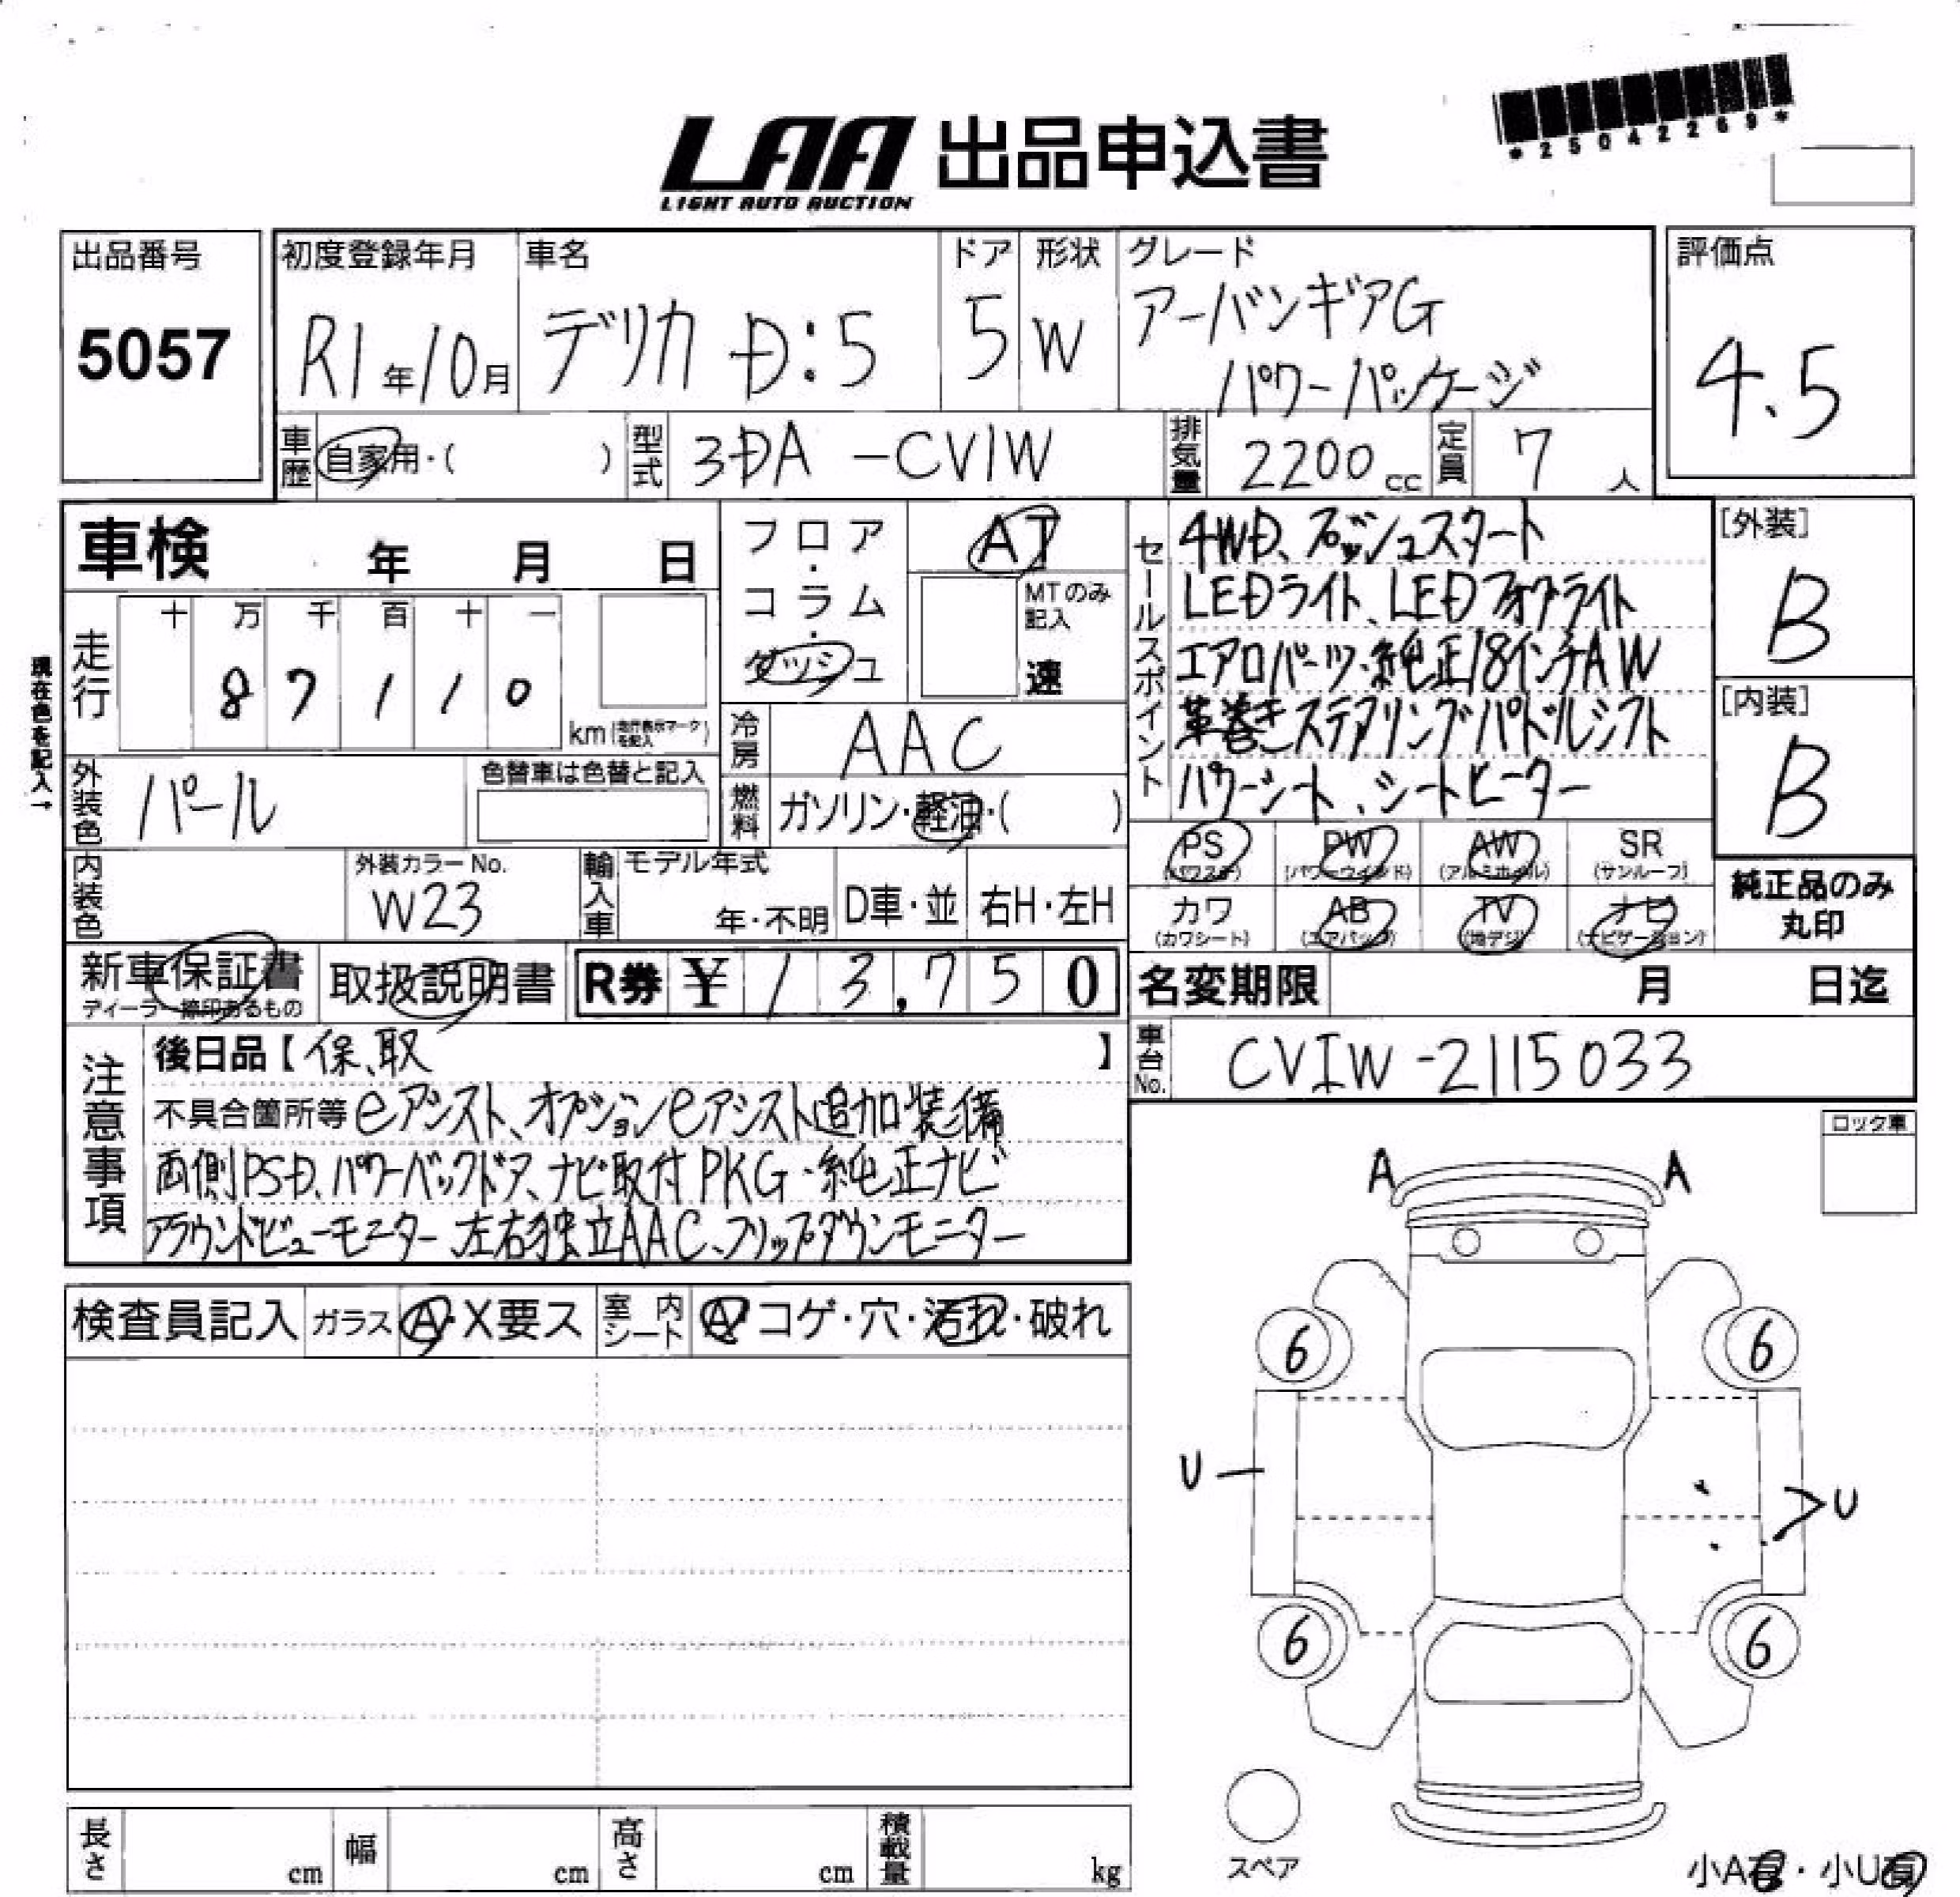 *25042269*
LAA 出品申込書
LIGHT AUTO AUCTION
出品番号 初度登録年月 車名 ドア 形状 グレード 評価点
5057 R1年10月 デリカ D:5 5 W アーバンギアG
パワーパッケージ 4.5
車歴 自家用・( ) 型式 3DA -CV1W 排気量 2200cc 定員 7人
車検 年 月 日
フロア・コラム・ダッシュ AT
MTのみ記入 速
セールスポイント
4WD、プッシュスタート
LEDライト、LEDフォグライト
エアロパーツ・純正18インチAW
革巻きステアリング パドルシフト
パワーシート、シートヒーター
[外装]
B
[内装]
B
現在色を記入→
走行 十 万 千 百 十 一
8 7 1 1 0 km(走行表示マークを記入)
冷房 AAC
外装色 パール 色替車は色替と記入
燃料 ガソリン・軽油・( )
内装色 外装カラーNo. W23
輸入車 モデル年式 年・不明 D車・並 右H・左H
PS (パワステ) PW (パワーウインド) AW (アルミホイル) SR (サンルーフ)
カワ (カワシート) AB (エアバッグ) TV (地デジ) ナビ (ナビゲーション)
純正品のみ
丸印
新車保証書 ディーラー捺印あるもの 取扱説明書 R券 ¥13,750
名変期限 月 日迄
車台No. CV1W-2115033
注意事項
後日品【保、取 】
不具合箇所等 eアシスト、オプションeアシスト追加装備
両側PSD、パワーバックドア、ナビ取付PKG・純正ナビ
アラウンドビューモニター、左右独立AAC、フリップダウンモニター
ロック車
検査員記入 ガラス A・X要ス 室内シート A・コゲ・穴・汚れ・破れ
A A
6 6
U U
6 6
スペア
長さ cm 幅 cm 高さ cm 積載量 kg
小A有・小U有